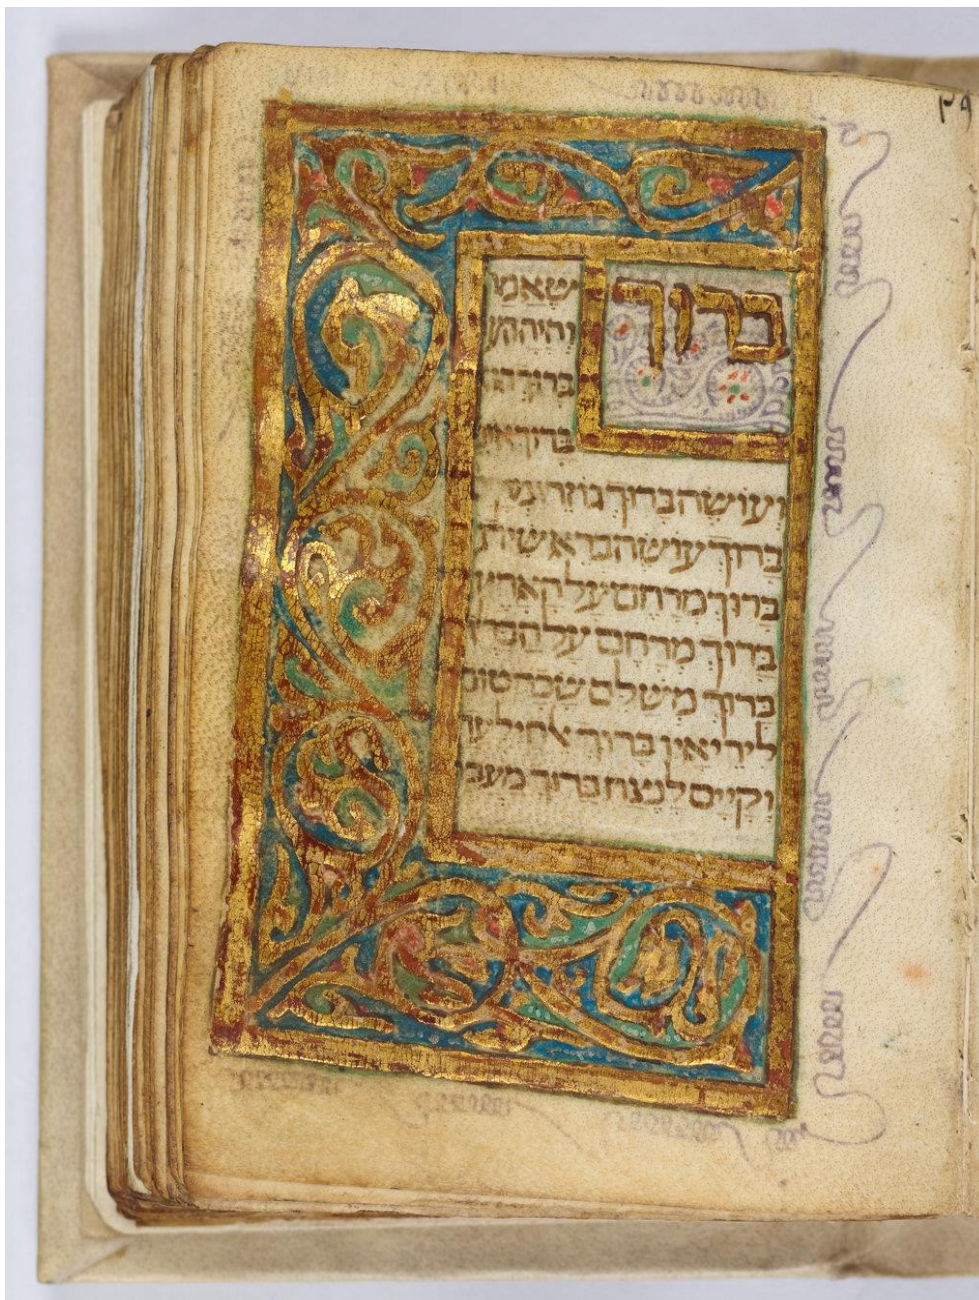 ברוך
שאמר
והיה הע
ברוך הו
ברוך או
ועושה ברוך גוזר ומקי
ברוך עושה בראשית
ברוך מרחם על הארץ
ברוך מרחם על הבריו
ברוך משלם שכר טוב
ליריאיו ברוך אל חי לעד
וקיים לנצח ברוך מעבי